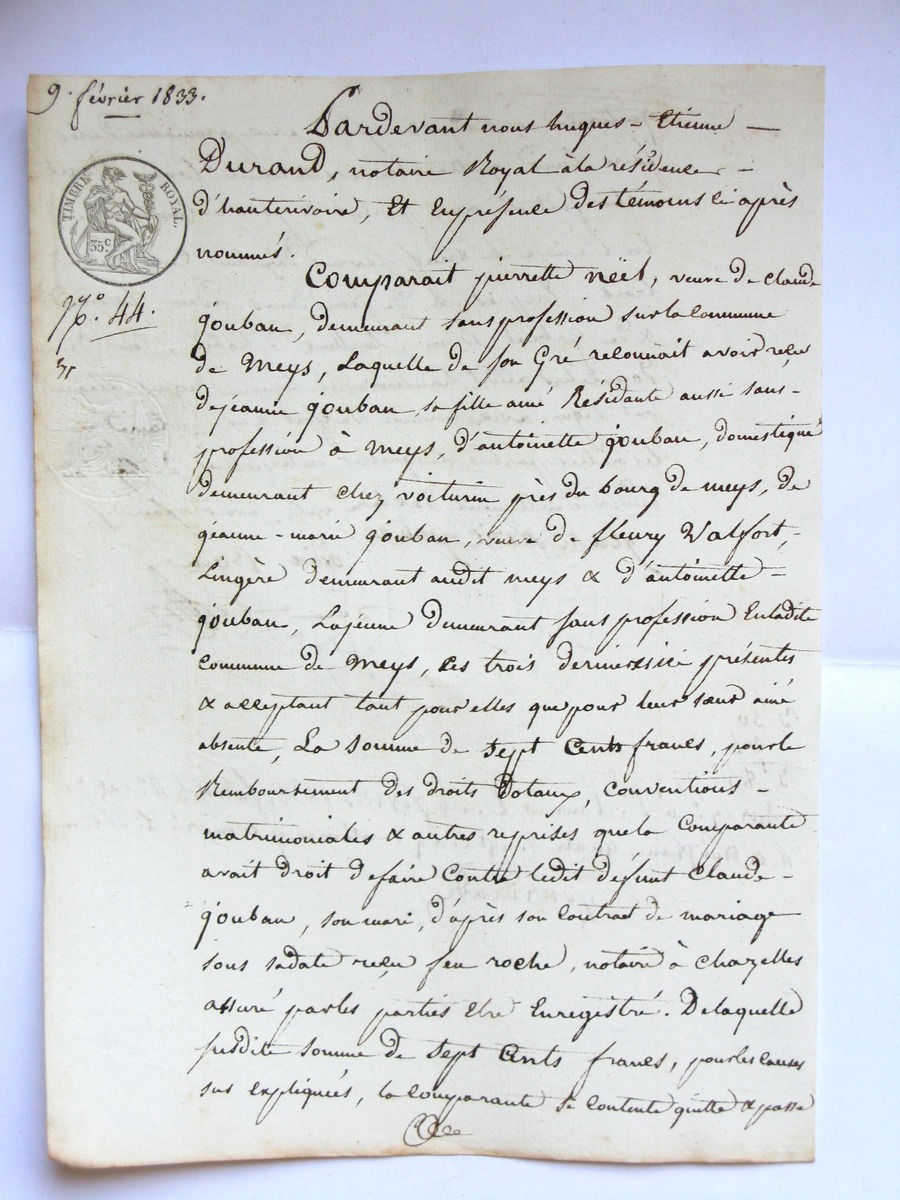 9. février 1833.
Pardevant nous hugues-Etienne
Durand, notaire Royal à la résidence
d'hauterivoire, Et en présence des témoins ci après
nommés.
TIMBRE ROYAL.
35 c
N.° 44.
Comparait pierrette néel, veuve de claude
gouban, demeurant sans profession sur la commune
de Meys, Laquelle de son Gré reconnait avoir reçu
de jeanne gouban, sa fille ainé Résidante aussi sans
profession à Meys, d'antoinette gouban, domestique
demeurant chez voiturin près du bourg de meys, de
jeanne-marie gouban, veuve de fleury Valfort,
Lingère demeurant audit meys & d'antoinette
gouban, La jeune demeurant sans profession Enladite
Commune de Meys, ces trois dernieres ici présentes
& acceptant tant pour elles que pour leur sœur ainé
absente, La somme de Sept Cents francs, pour le
Remboursement des droits dotaux, conventions
matrimoniales & autres reprises que la Comparante
avait droit de faire Contre ledit défunt Claude
gouban, son mari, d'après son Contract de mariage
sous sa date reçu feu roche, notaire à Chazelles
assuré par les parties Etre Enregistré. De laquelle
susdite somme de Sept Cents francs, pour les causes
sus expliquées, la comparante se contente quitte & passe